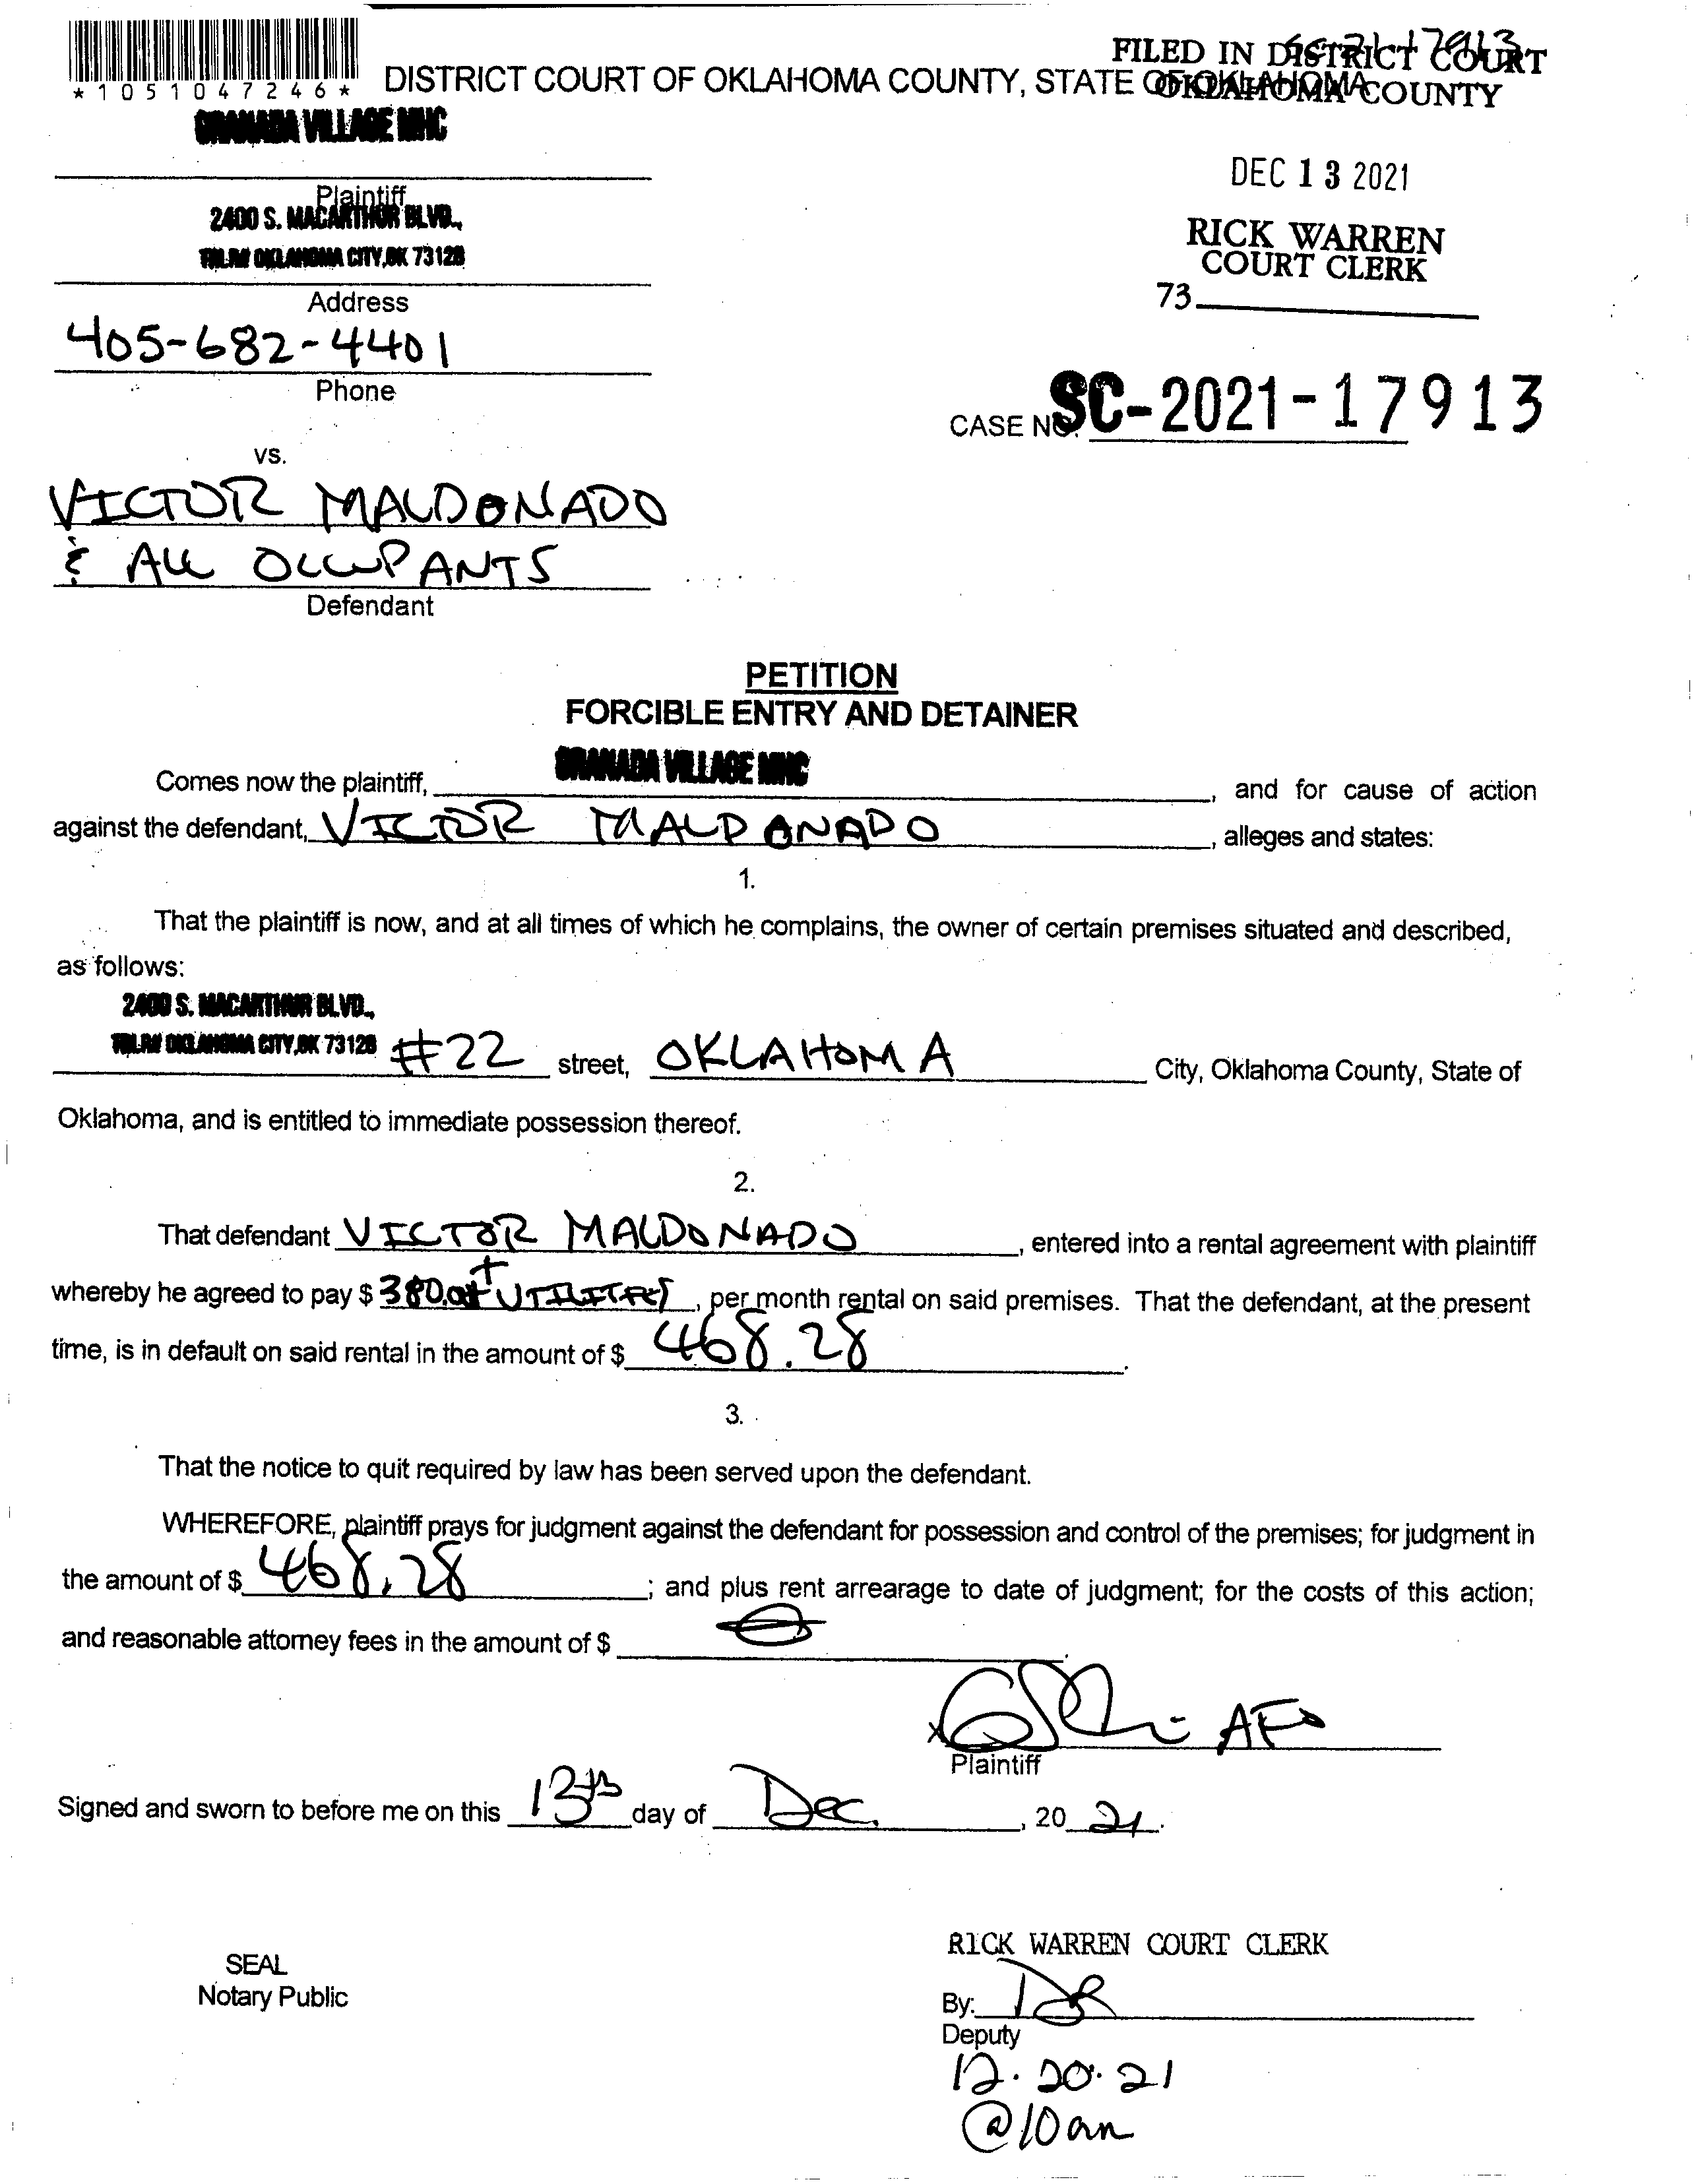 SC-21-17913
FILED IN DISTRICT COURT
OKLAHOMA COUNTY
*1051047246*
DISTRICT COURT OF OKLAHOMA COUNTY, STATE OF OKLAHOMA
GRANADA VILLAGE MHC
DEC 13 2021
Plaintiff
2400 S. MACARTHUR BLVD.,
OKLAHOMA CITY, OK 73128
RICK WARREN
COURT CLERK
Address
73
405-682-4401
Phone
CASE NO. SC-2021-17913
vs.
VICTOR MALDONADO
& ALL OCCUPANTS
Defendant
PETITION
FORCIBLE ENTRY AND DETAINER
Comes now the plaintiff, GRANADA VILLAGE MHC, and for cause of action
against the defendant, VICTOR MALDANADO, alleges and states:
1.
That the plaintiff is now, and at all times of which he complains, the owner of certain premises situated and described,
as follows:
2400 S. MACARTHUR BLVD.,
OKLAHOMA CITY, OK 73128 #22 street, OKLAHOMA City, Oklahoma County, State of
Oklahoma, and is entitled to immediate possession thereof.
2.
That defendant VICTOR MALDONADO, entered into a rental agreement with plaintiff
whereby he agreed to pay $ 380.00 + UTILITIES, per month rental on said premises. That the defendant, at the present
time, is in default on said rental in the amount of $ 468.28.
3.
That the notice to quit required by law has been served upon the defendant.
WHEREFORE, plaintiff prays for judgment against the defendant for possession and control of the premises; for judgment in
the amount of $ 468.28; and plus rent arrearage to date of judgment; for the costs of this action;
and reasonable attorney fees in the amount of $ .
X
Plaintiff
Signed and sworn to before me on this 13th day of Dec., 20 21.
RICK WARREN COURT CLERK
SEAL
Notary Public
By:
Deputy
12.20.21
@10am